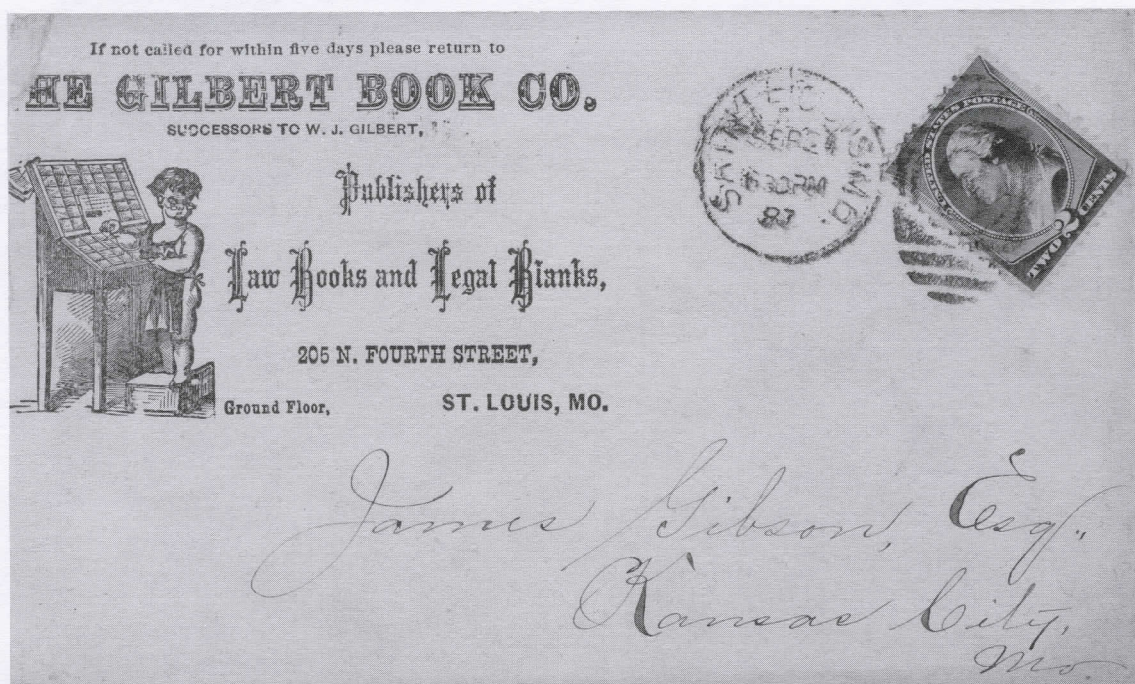 If not called for within five days please return to
HE GILBERT BOOK CO.
SUCCESSORS TO W. J. GILBERT,
Publishers of
Law Books and Legal Blanks,
205 N. FOURTH STREET,
Ground Floor,
ST. LOUIS, MO.
630PM
UNITED STATES POSTAGE
TWO 2 CENTS
James Gibson, Esq.,
Kansas City,
Mo